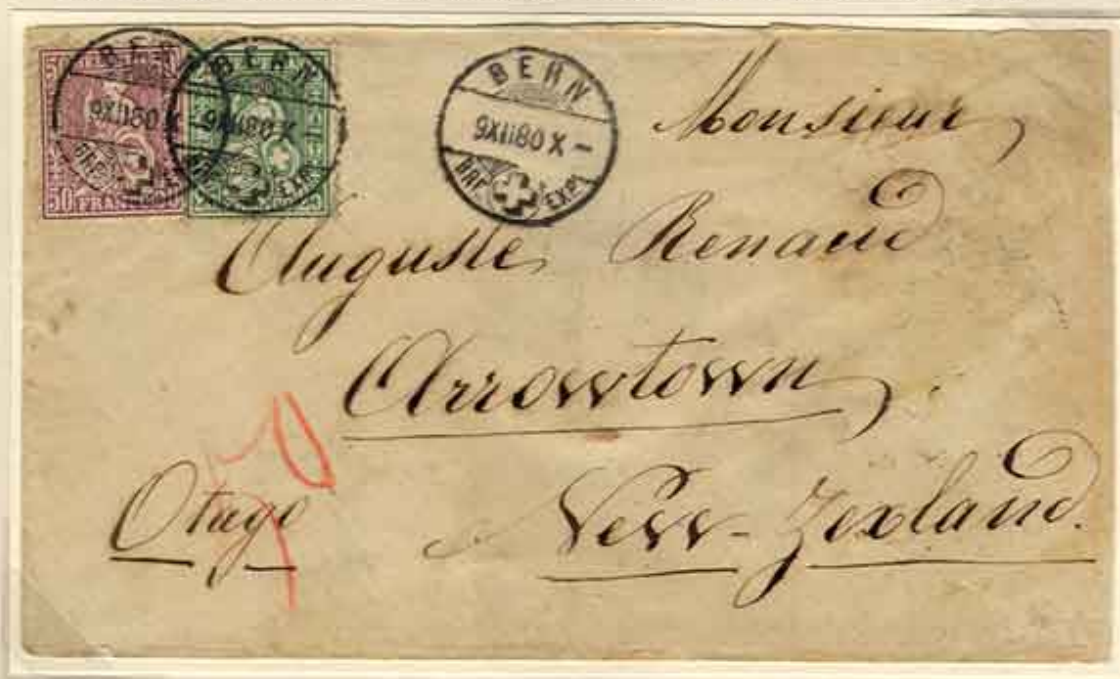 BERN
9XII80X-
BRF. EXP.
BERN
9XII80X-
EXP.
BERN
9XII80X-
BRF. EXP.
50 FRANCO
Monsieur
Auguste Renaud
Arrowtown
Otago
New-Zealand.